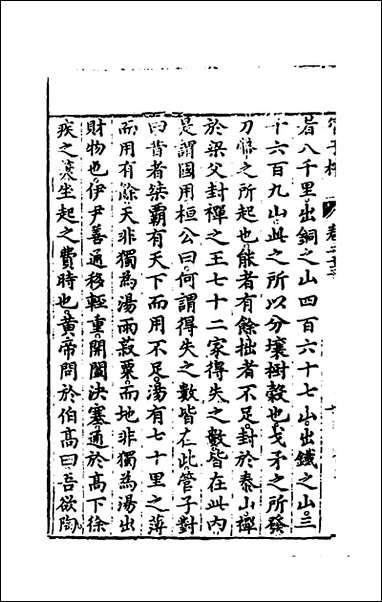 管子榷 卷二十三
者八千里出銅之山四百六十七山出鐵之山三
千六百九山此之所以分壤樹穀也戈矛之所發
刀幣之所起也能者有餘拙者不足封於泰山禪
於梁父封禪之王七十二家得失之數皆在此內
是謂國用桓公曰何謂得失之數皆在此管子對
曰昔者桀霸有天下而用不足湯有七十里之薄
而用有餘天非獨為湯雨菽粟而地非獨為湯出
財物也伊尹善通移輕重開闔決塞通於高下徐
疾之筴坐起之費時也黃帝問於伯高曰吾欲陶